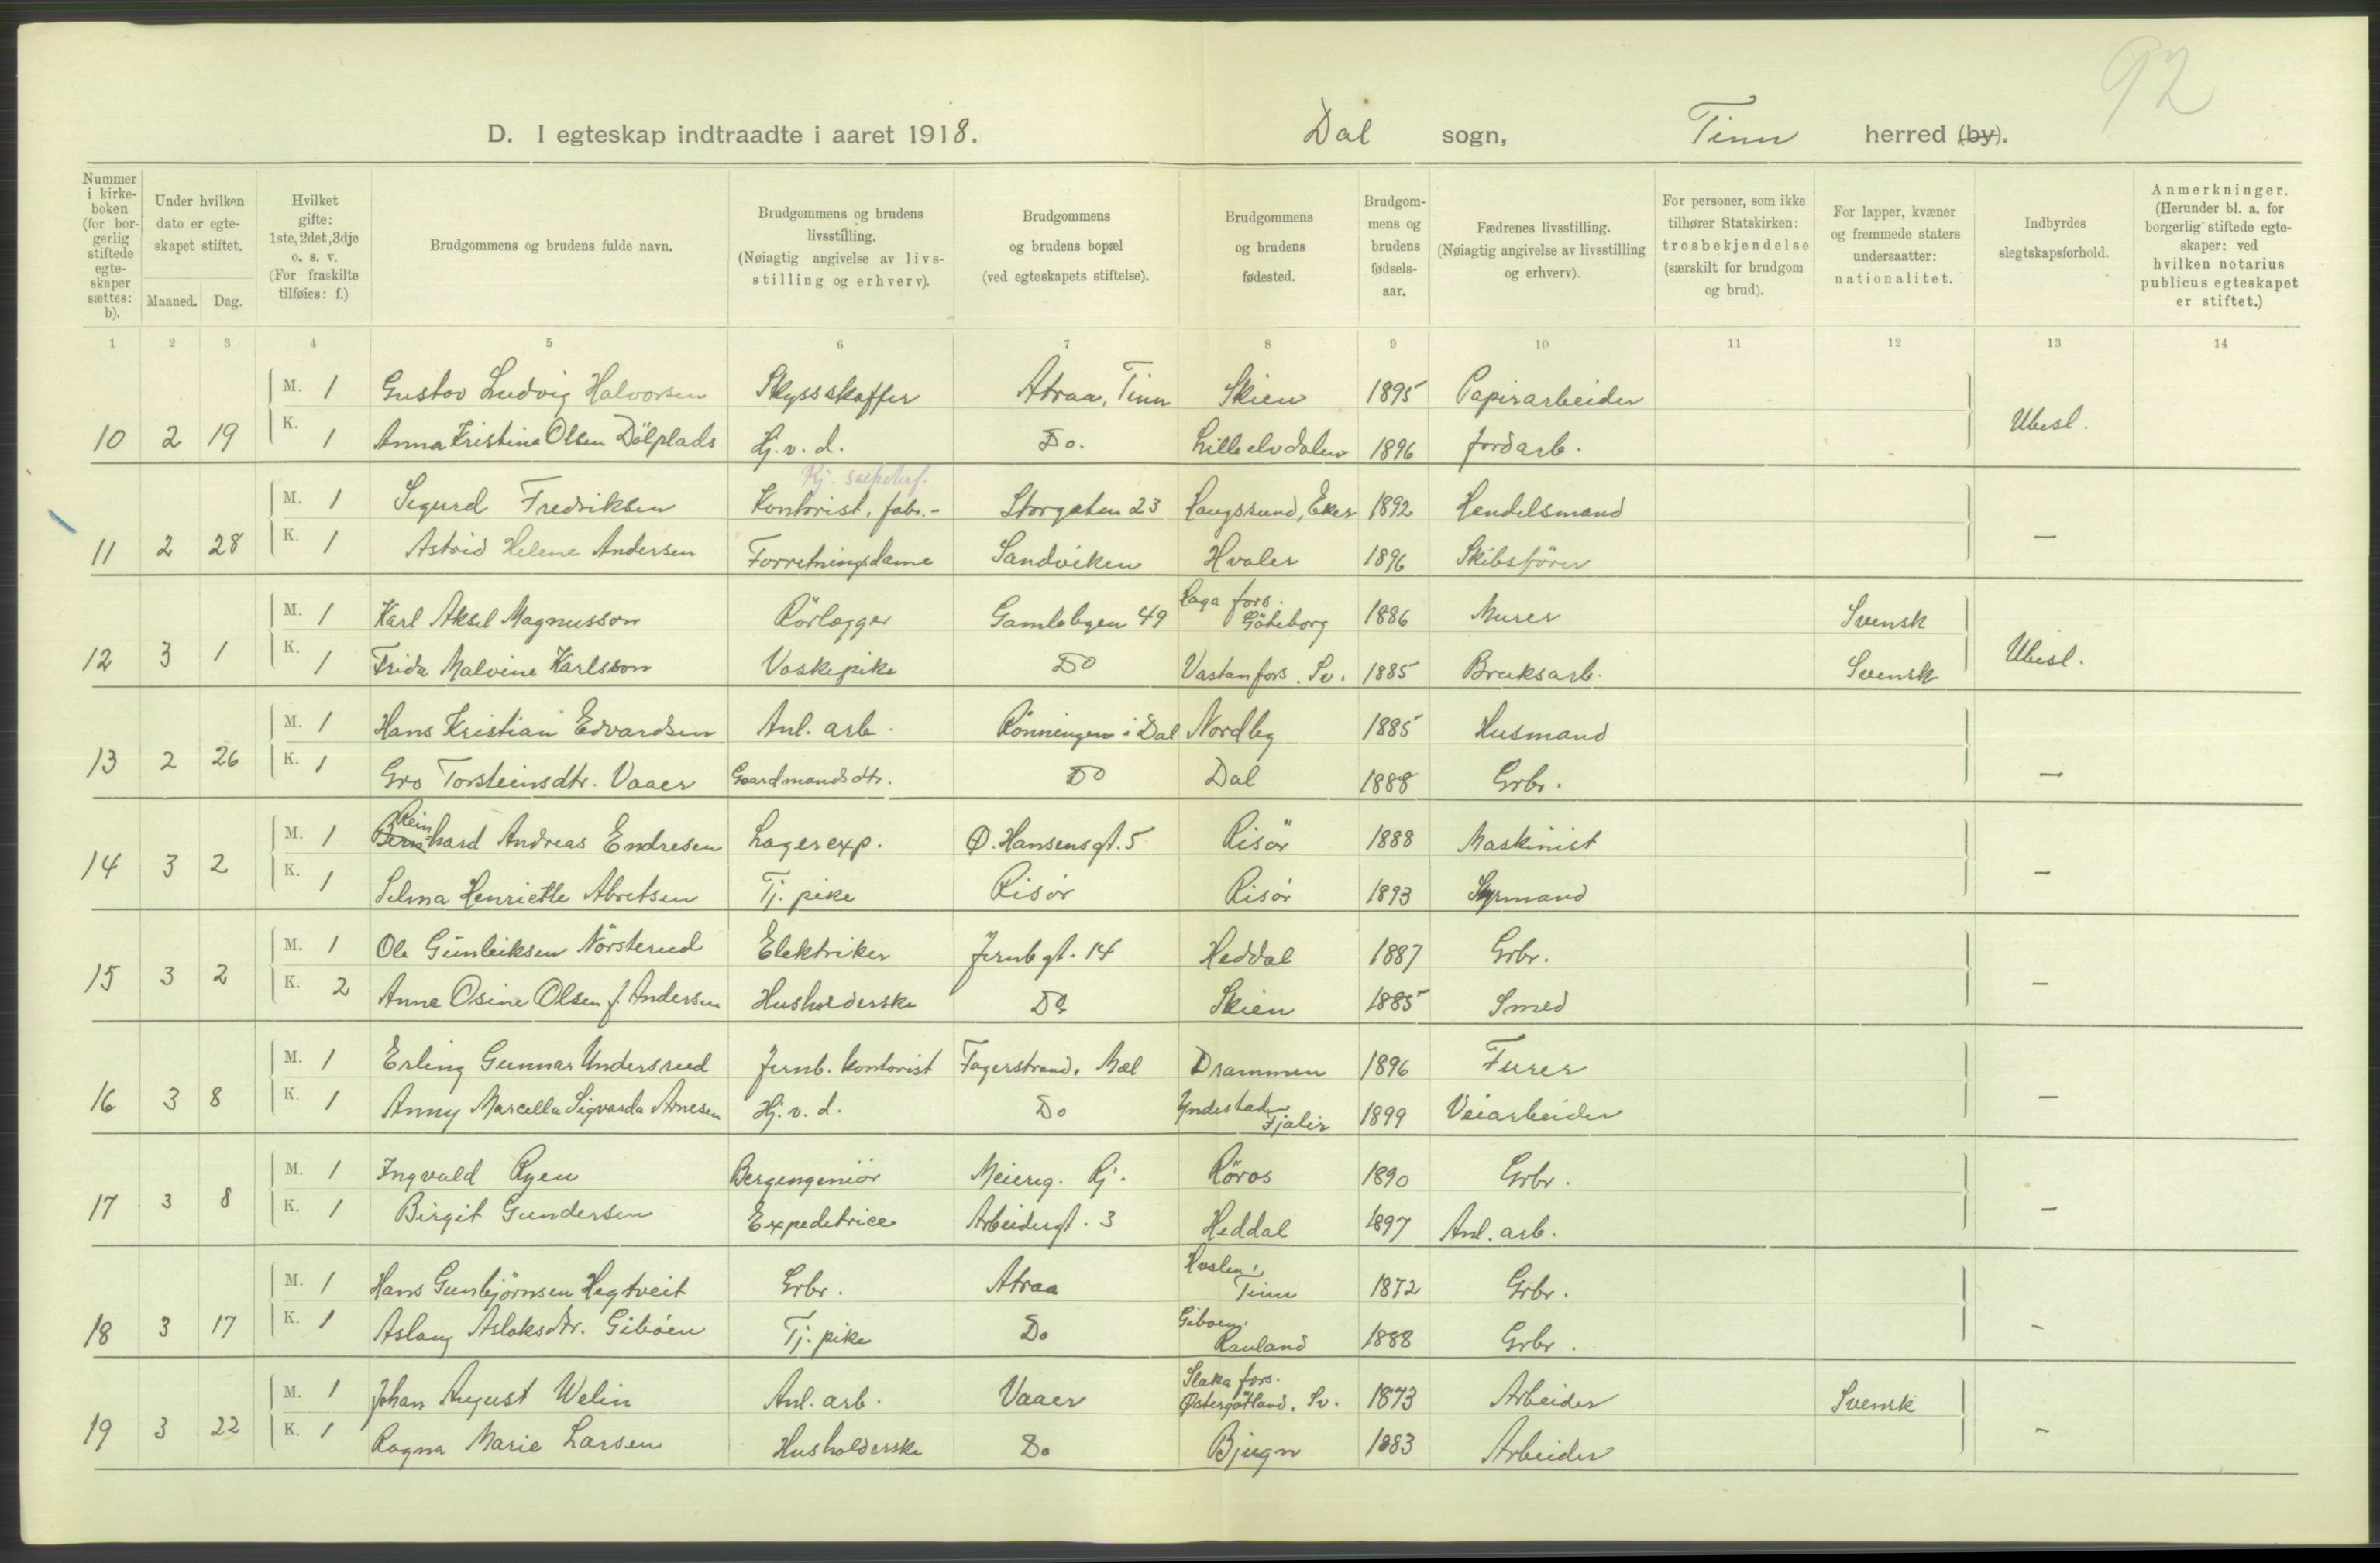 92
D. I egteskap indtraadte i aaret 1918. Dal sogn, Tinn herred (by).
Nummer i kirke-boken (for bor-gerlig stiftede egte-skaper sættes: b).
Under hvilken dato er egte-skapet stiftet.
Maaned. Dag.
Hvilket gifte: 1ste, 2det, 3dje o. s. v. (For fraskilte tilføies: f.)
Brudgommens og brudens fulde navn.
Brudgommens og brudens livsstilling. (Nøiagtig angivelse av livs-stilling og erhverv).
Brudgommens og brudens bopæl (ved egteskapets stiftelse).
Brudgommens og brudens fødested.
Brudgom-mens og brudens fødsels-aar.
Fædrenes livsstilling. (Nøiagtig angivelse av livsstilling og erhverv).
For personer, som ikke tilhører Statskirken: trosbekjendelse (særskilt for brudgom og brud).
For lapper, kvæner og fremmede staters undersaatter: nationalitet.
Indbyrdes slegtskapsforhold.
Anmerkninger. (Herunder bl. a. for borgerlig stiftede egte-skaper: ved hvilken notarius publicus egteskapet er stiftet.)
1 2 3 4 5 6 7 8 9 10 11 12 13 14
M. 1 Gustav Ludvig Halvorsen Skyssskaffer Atraa, Tinn Skien 1895 Papirarbeider
10 2 19 K. 1 Anna Kristine Olsen Dölplads Hj. v. d. Do. Lilleelvdalen 1896 Jordarb. Ubesl.
Rj. salpeterf.
M. 1 Sigurd Fredriksen Kontorist, fabr.- Storgaten 23 Haugsund, Eker 1892 Handelsmand
11 2 28 K. 1 Astrid Helene Andersen Forretningsdame Sandviken Hvaler 1896 Skibsförer —
Haga fors.
M. 1 Karl Aksel Magnusson Rörlægger Gamlebyen 49 Göteborg 1886 Murer Svensk
12 3 1 K. 1 Frida Malvine Karlsson Vaskepike Do Vastanfors. Sv. 1885 Bruksarb. Svensk Ubesl.
M. 1 Hans Kristian Edvardsen Anl. arb. Rönningen i Dal Nordby 1885 Husmand
13 2 26 K. 1 Gro Torsteinsdtr. Vaaer Gaardmandsdtr. Do Dal 1888 Grbr. —
Rein
M. 1 Bernhard Andreas Endresen Lagerexp. Ø. Hansensgt. 5 Risör 1888 Maskinist
14 3 2 K. 1 Selma Henriette Abretsen Tj. pike Risör Risör 1893 Styrmand —
M. 1 Ole Gunleiksen Nörsterud Elektriker Jernbgt. 14 Heddal 1887 Grbr.
15 3 2 K. 2 Anne Osine Olsen f. Andersen Husholderske Do Skien 1885 Smed —
M. 1 Erling Gunnar Undersrud Jernb. kontorist Fagerstrand, Mæl Drammen 1896 Furer
16 3 8 K. 1 Anny Marcella Sigvarda Arnesen Hj. v. d. Do Yndestad Fjaler 1899 Veiarbeider —
M. 1 Ingvald Ryen Bergingeniör Meiereg. Rj. Röros 1890 Grbr.
17 3 8 K. 1 Birgit Gundersen Expeditrice Arbeidergt. 3 Heddal 1897 Anl. arb. —
M. 1 Hans Gunbjörnsen Hegtveit Grbr. Atraa Hvalen, Tinn 1872 Grbr.
18 3 17 K. 1 Aslaug Aslaksdtr. Giböen Tj. pike Do Giboen, Rauland 1888 Grbr. —
Slaka fors.
M. 1 Johan August Welin Anl. arb. Vaaer Østergötland, Sv. 1873 Arbeider Svensk
19 3 22 K. 1 Ragna Marie Larsen Husholderske Do Bjugn 1883 Arbeider —